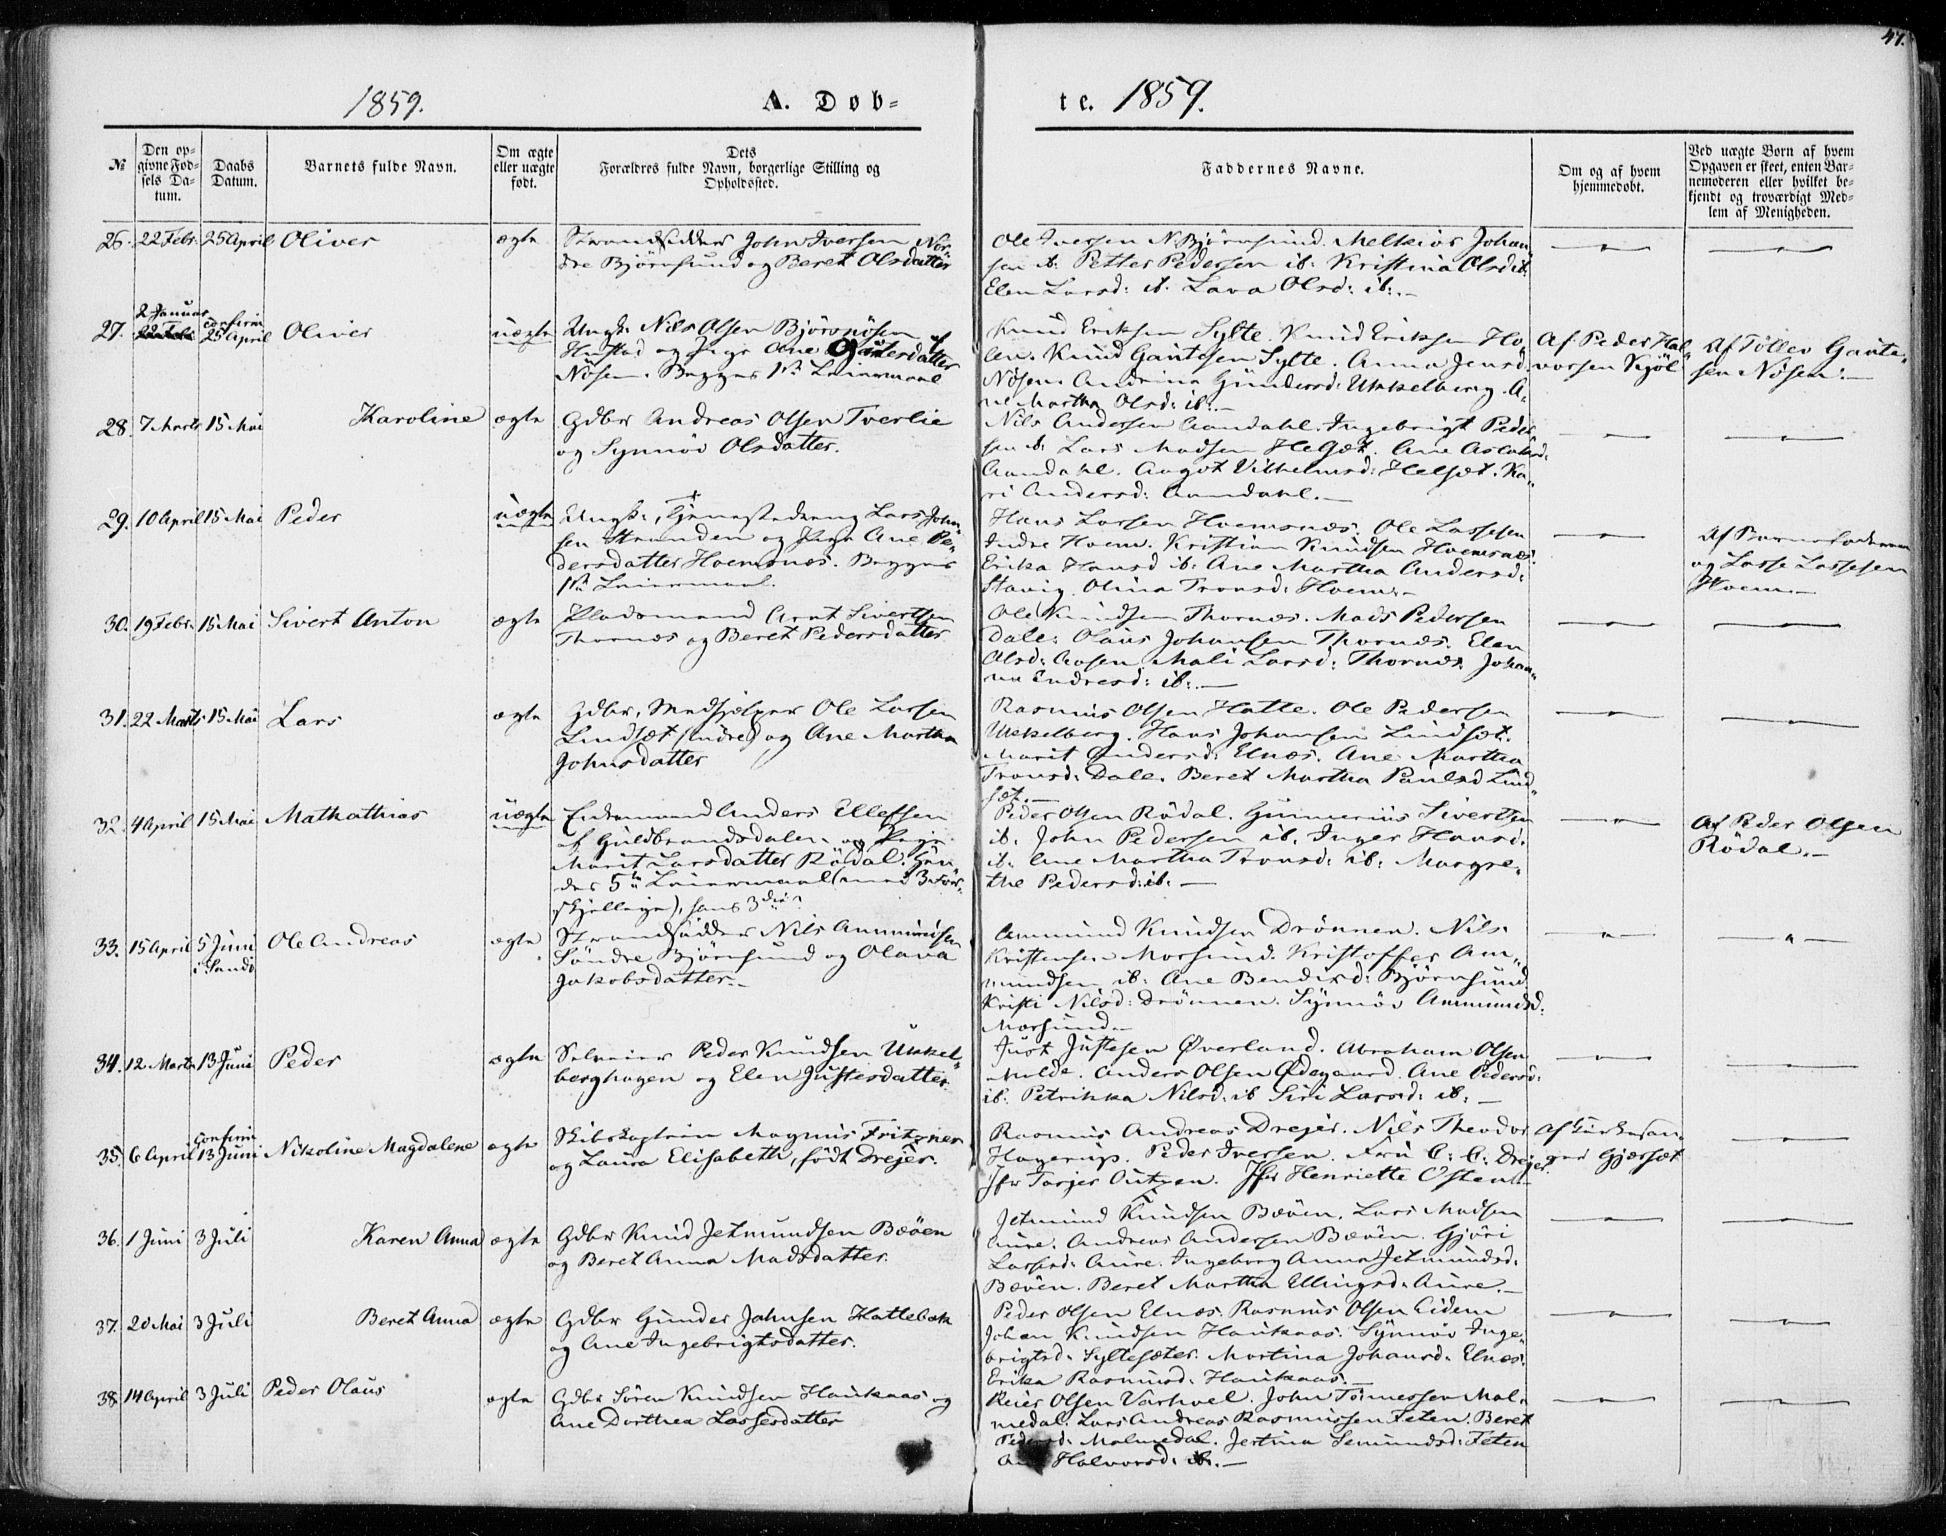 47.
1859. A. Døb=
te. 1859.
№
Den op=
givne Fød=
sels Da=
tum.
Daabs
Datum.
Barnets fulde Navn.
Om ægte
eller uægte
født.
Dets
Forældres fulde Navn, borgerlige Stilling og
Opholdssted.
Faddernes Navne.
Om og af hvem
hjemmedøbt.
Ved uægte Børn af hvem
Opgaven er skeet, enten Bar=
nemoderen eller hvilket be=
kjendt og troværdigt Med=
lem af Menigheden.
26. 22 Febr. 25 April Oliver ægte Strandsidder John Iversen Nör=
dre Björnsund og Beret Olsdatter
Ole Iversen N. Björnsund. Melkiør Johan=
sen ib. Petter Pedersen ib: Kristina Olsd ib:
Elen Larsd: ib. Lava Olsd: ib:.—
27. 2 Januar 22 Febr confirm 25 April Oliver uægte Ungk: Nils Olsen Björnnösen
Hustad og Pige Ane Gautesdatter
Nösen. Begges 1ste Leiermaal
Knud Eriksen Sylte. Knud Eriksen Ho=
len. Knud Gautesen Sylte. Anna Jensd.
Nösen. Andrina Gundersd: Ukkelberg. A=
ne Martha Olsd: ib:.—
Af Peder Hal=
vorsen Skjöl
Af Tollev Gaute=
sen Nösen.—
28. 7 Marts 15 Mai Karoline ægte Gdbr Andreas Olsen Tverlie
og Synnöv Olsdatter.
Nils Andersen Aandahl. Ingebrigt Peder
sen ib: Lars Madsen Helset. Ane Aslaksd:
Aandahl. Aagot Vilhelmsd: Helset. Ka=
ri Andersd: Aandahl.—
29. 10 April 15 Mai Peder uægte Ungk:, Tjenestedreng Lars John
sen Stranden og Pige Ane Pe=
dersdatter Hoemsnæs. Begges
1ste Leiermaal.
Hans Larsen Hoemsnæs. Ole Lassesen
Indre Hoem. Kristian Knudsen Hoemsnæs.
Erika Hansd ib: Ane Martha Andersd:
Stavig. Olina Tronsd: Hoem.—
Af Barnefaderen
og Lasse Lassesen
Hoem.—
30. 19 Febr. 15 Mai Sivert Anton ægte Pladsmand Arnt Sivertsen
Thornæs og Beret Pedersdatter
Ole Knudsen Thornæs. Mads Pedersen
Dale. Olaus Johansen Thornæs. Elen
Olsd: Aasen. Mali Larsd: Thornæs. Johan=
na Endresd: ib:.—
31. 22 Marts 15 Mai Lars ægte Gdbr, Medhjelper Ole Larsen
Lindset (indre) og Ane Martha
Johnsdatter
Rasmus Olsen Hatle. Ole Pedersen
Ukkelberg. Hans Johansen Lindset.
Marit Andersd: Elnæs. Ane Martha
Tronsd: Dale. Beret Martha Paulsd Lind=
set.—
32. 4 April 15 Mai Mathathias uægte Enkemand Anders Ellefsen
af Guldbrandsdalen og Pige
Marit Larsdatter Rödal. Hen=
des 5te Leiermaal (med 3 For=
skjellige), hans 3die?
Peder Olsen Rödal. Gunnerius Sivertsen
ib. John Pedersen ib. Inger Hansd.
ib: Ane Martha Tronsd: ib: Margre=
the Pedersd: ib: —
Af Peder Olsen
Rödal.—
33. 15 April 5 Juni i Sandö Ole Andreas ægte. Strandsidder Nils Ammundsen
Söndre Björnsund og Olava
Jakobsdatter.—
Ammund Knudsen Drönnen. Nils
Kristensen Morsund. Kristoffer Am=
mundsen ib: Ane Bendixd: Björnsund
Kristi Nilsd: Drönnen. Synnöv Ammundsd:
Morsund.—
34. 12 Marts 13 Juni Peder ægte Selveier Peder Knudsen Ukkel=
berghagen og Elen Justesdatter
Just Justesen Øverland. Abraham Olsen
Molde. Anders Olsen Ødegaard. Ane Pedersd:
ib: Petrikka Nilsd: ib Siri Larsd: ib: —
35. 6 April confirm 13 Juni Nikoline Magdalene ægte Skibskaptein Magnus Fritzner
og Laura Elisabeth, födt Drejer.
Rasmus Andreas Drejer. Nils Theodor
Hagerup. Peder Iversen. Fru C: C: Drejer
Jfr Tarjer Outzen. Jfr Henriette Osten.—
Gjersæt
36. 1 Juni 3 Juli Karen Anna ægte Gdbr Knud Jetmundsen Bæöen
og Beret Anna Madsdatter.
Jetmund Knudsen Bæöen. Lars Madsen
Aure. Andreas Andersen Bæöen. Gjöri
Larsd: Aure. Ingeborg Anna Jetmundsd.
Bæöen. Beret Martha Ellingsd. Aure.—
37. 20 Mai 3 Juli Beret Anna ægte Gdbr Gunder Johnsen Hatlebak
og Ane Ingebrigtsdatter.
Peder Olsen Elnæs. Rasmus Olsen Eidem
Johan Knudsen Haukaas. Synnöv Inge=
brigtsd. Syltesæter. Martina Johansd. Elnæs.
Erika Rasmusd: Haukaas.—
38. 14 April 3 Juli Peder Olaus ægte Gdbr Sören Knudsen Haukaas og
Ane Dorthea Lassesdatter
Reier Olsen Varhol. John Tönnessen Mal=
medal. Lars Andreas Rasmussen Feten. Beret
Pedersd: Malmedal. Jertina Semundsd: Feten
Ane Halvorsd: ib:.—